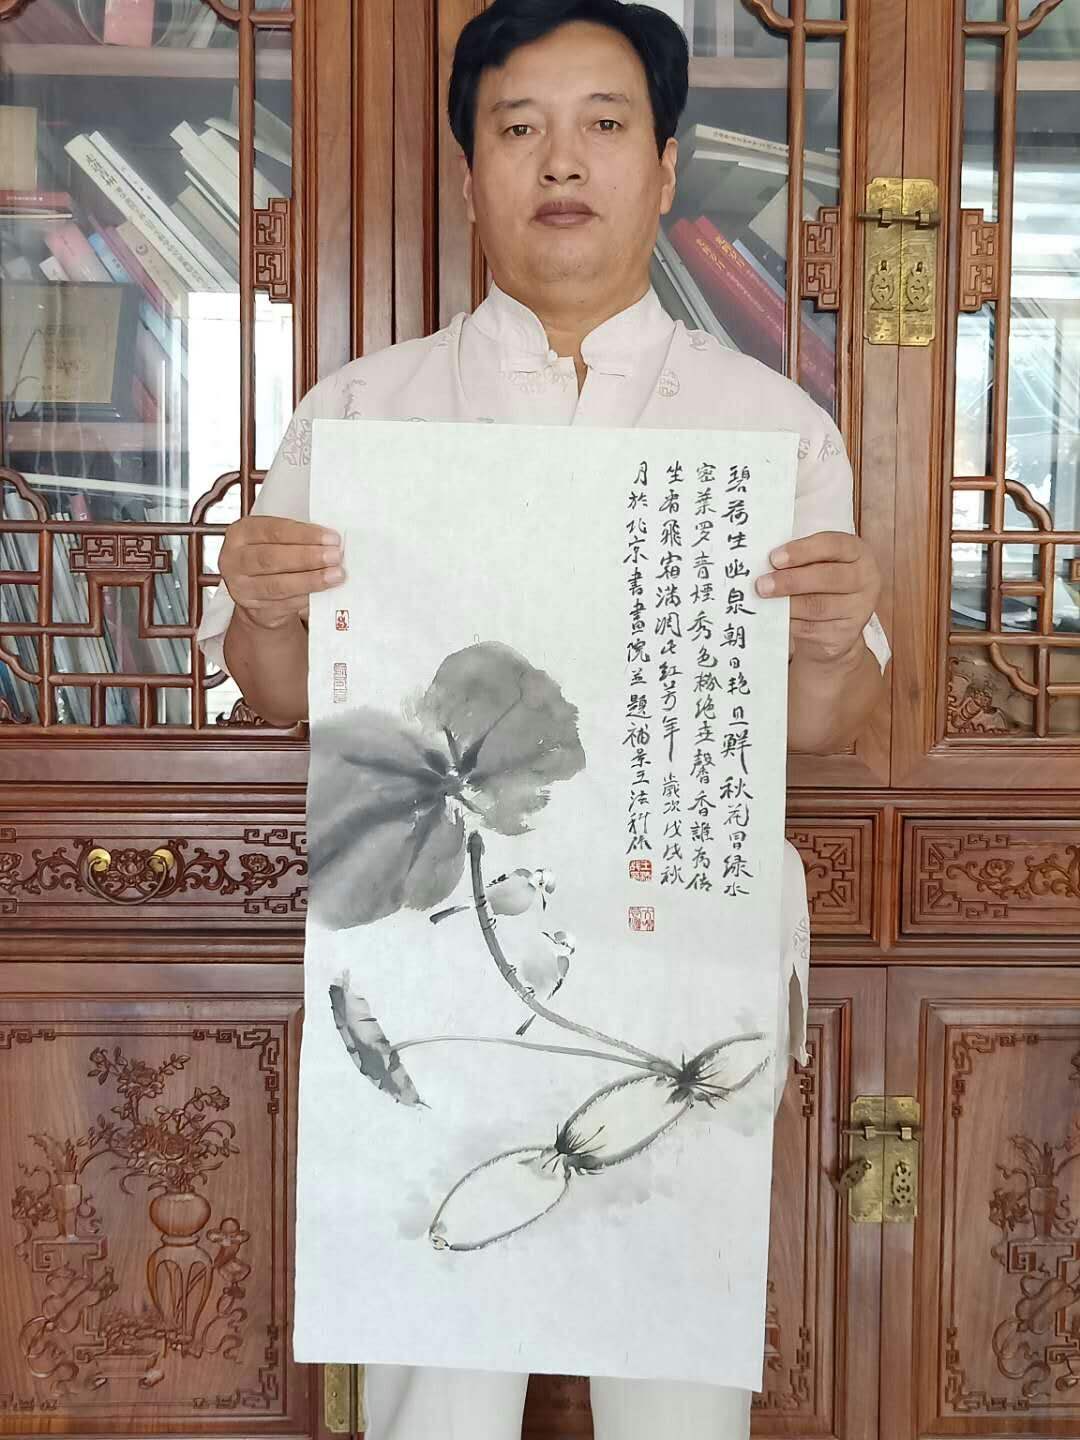 碧荷生幽泉朝日艳且鲜秋花冒绿水
密叶罗青烟秀色粉绝世馨香谁为传
坐看飛霜满凋此红芳年 歲次戊戌秋
月於北京書畫院並題補景王法科作